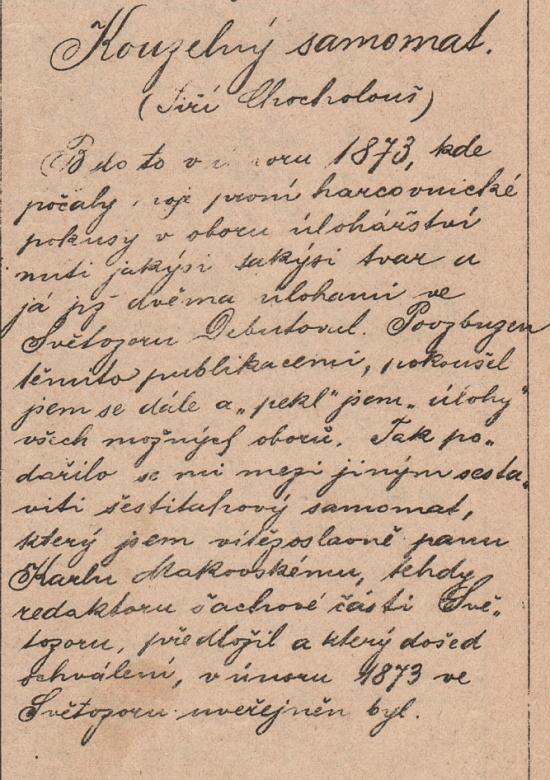 Kouzelný samomat.
(Jiří Chocholouš)
B lo to v únoru 1873, kde
počaly moje první harcovnické
pokusy v oboru úlohářství
míti jakýsi takýsi tvar a
já již dvěma úlohami ve
Světozoru Debutoval. Povzbuzen
těmito publikacemi, pokoušel
jsem se dále a „pekl" jsem „úlohy"
všech možných oborů. Tak po„
dařilo se mi mezi jiným sesta„
viti šestitahový samomat,
který jsem vítězoslavně panu
Karlu Makovskému, tehdy
redaktoru šachové části Svě„
tozoru, předložil a který došed
schválení, v únoru 1873 ve
Světozoru uveřejněn byl.